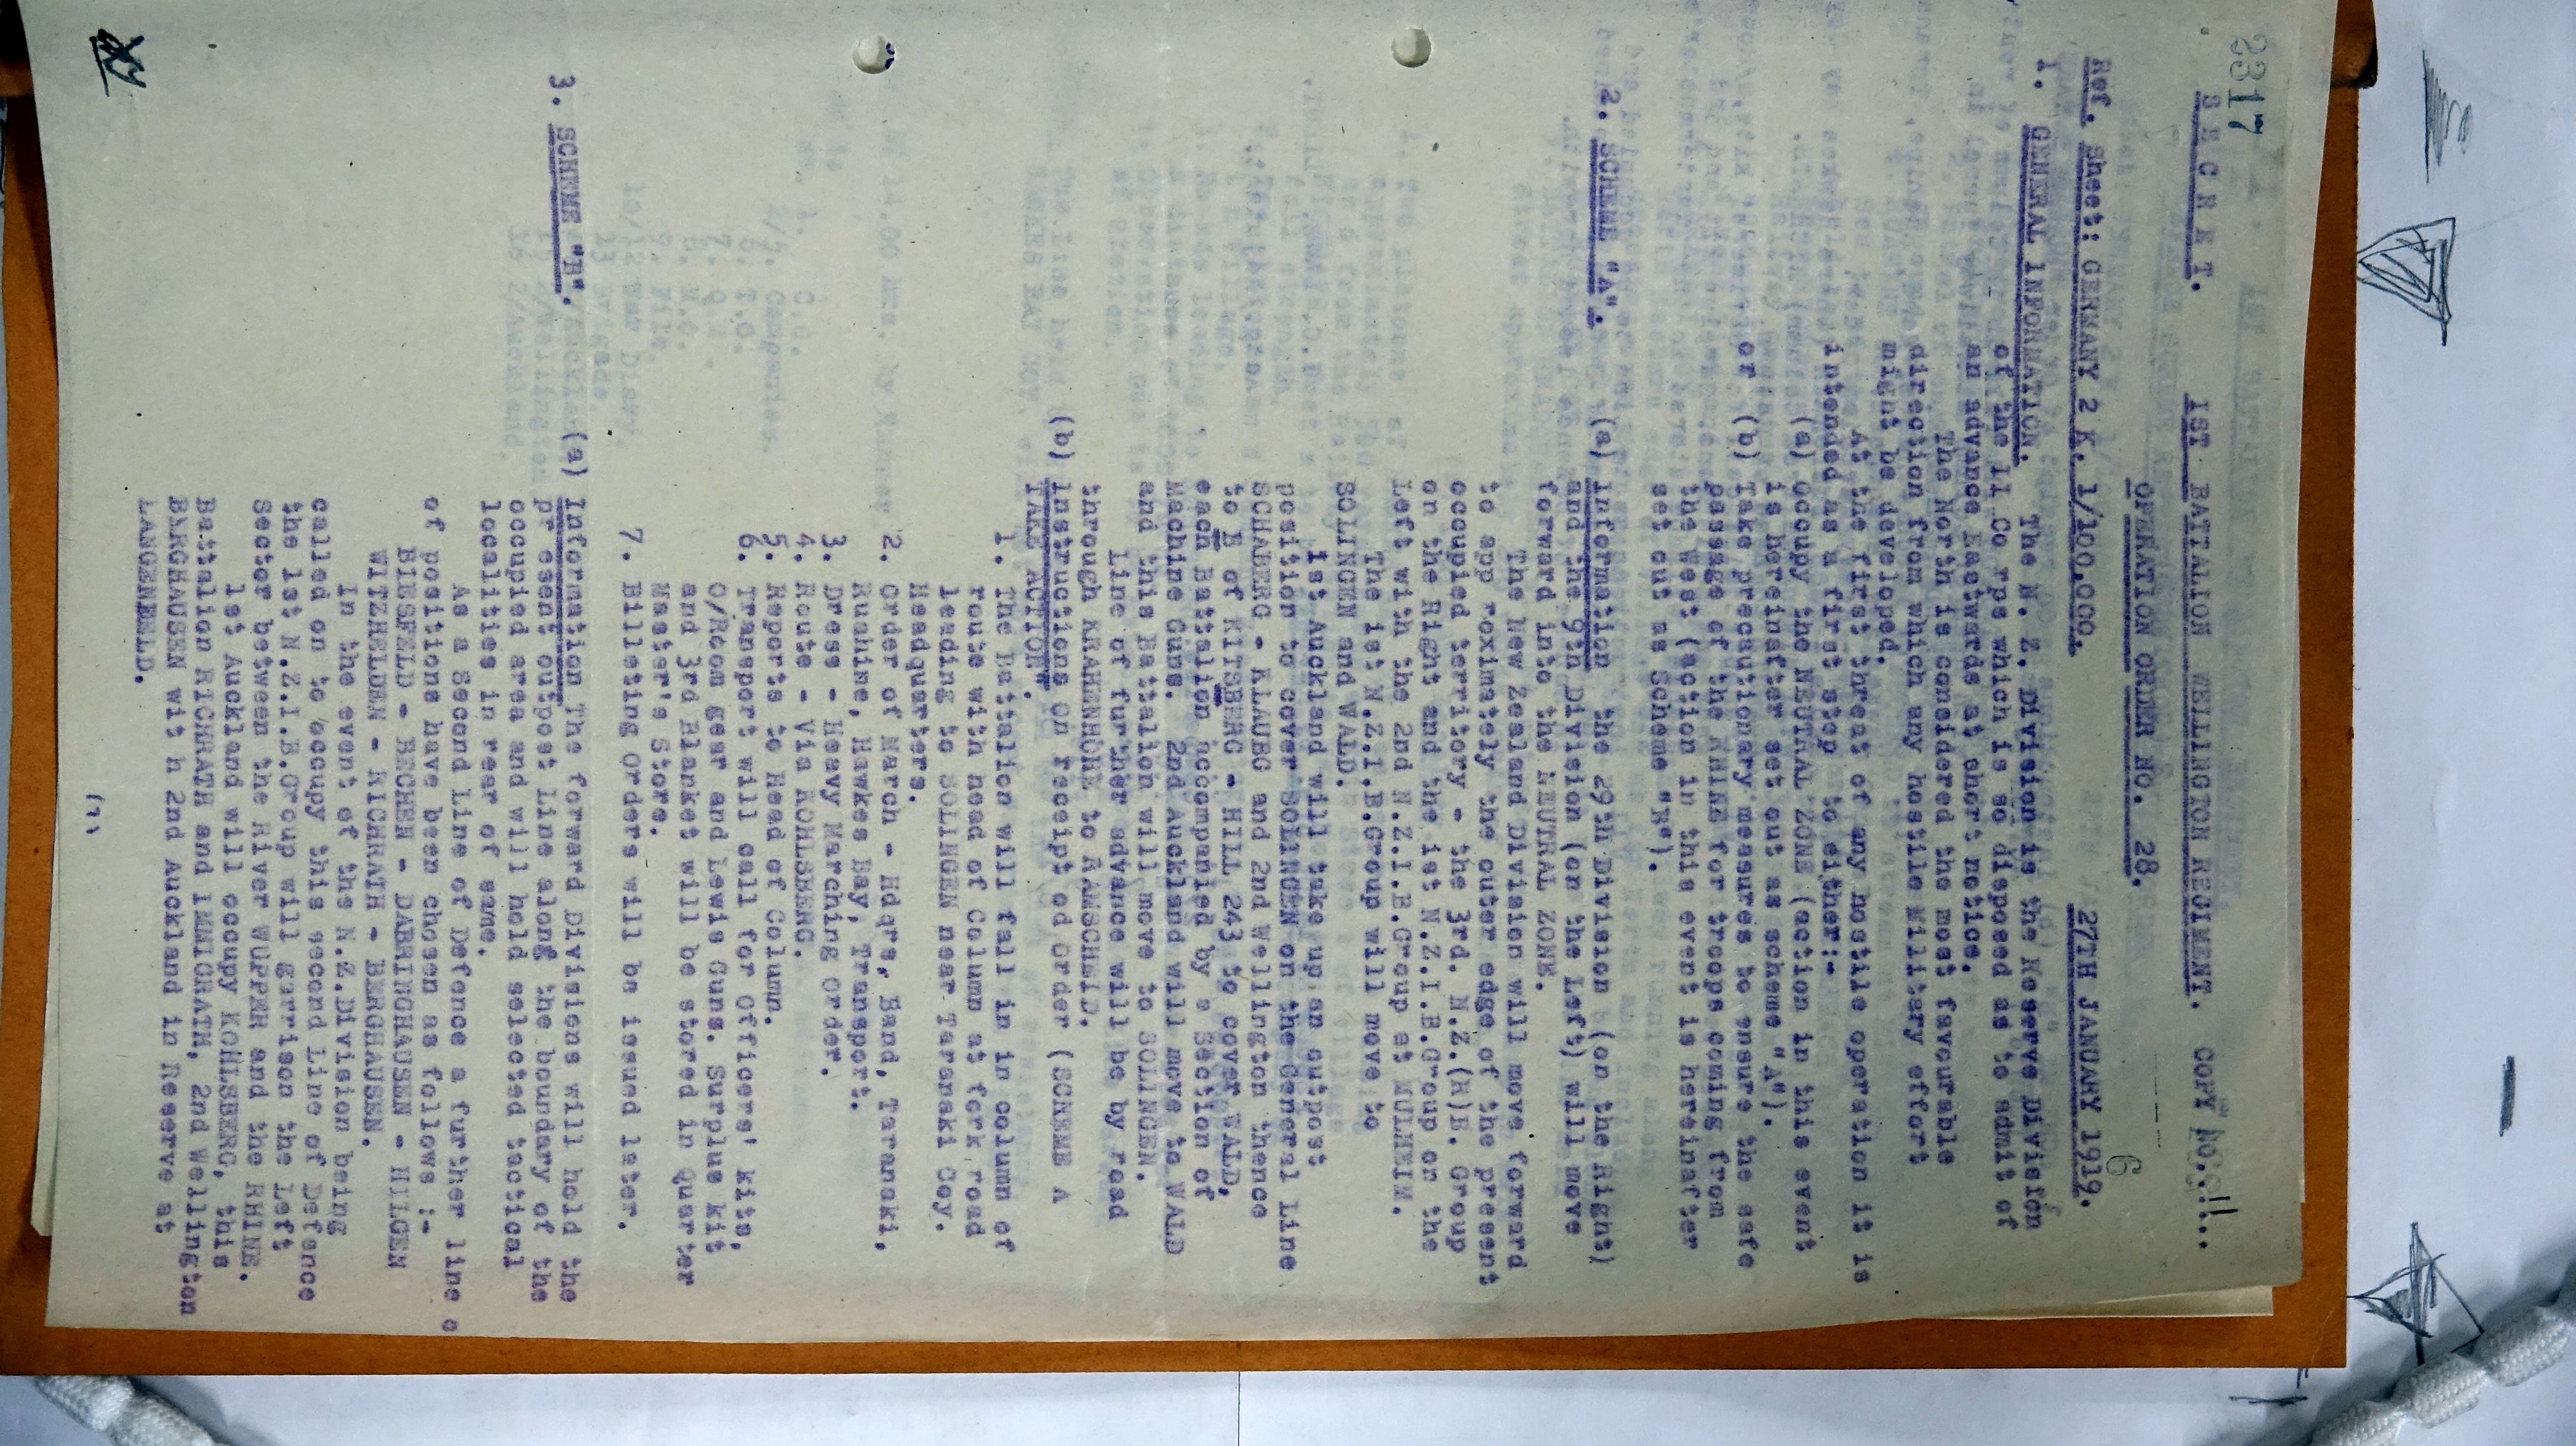 2317
S E C R E T. 1ST BATTALION WELLINGTON REGIMENT. COPY NO.11..
OPERATION ORDER NO. 28.
6
Ref. sheet: GERMANY 2 K. 1/100,000. 27TH JANUARY 1919.
1. GENERAL INFORMATION. The N. Z. Division is the Reserve Division
of the 11 Co rps which is so disposed as to admit of
an advance Eastwards at short notice.
The North is considered the most favourable
direction from which any hostile Military effort
might be developed.
At the first threat of any hostile operation it is
intended as a first step to either:-
(a) occupy the NEUTRAL ZONE (action in this event
is hereinafter set out as scheme "A").
or (b) Take precautionary measures to ensure the safe
passage of the RHINE for troops coming from
the West (action in this event is hereinafter
set out as Scheme "B").
2. SCHEME "A". (a) Information the 29th Division (on the Right)
and the 9th Division (on the Left) will move
forward into the NEUTRAL ZONE.
The New Zealand Division will move forward
to app roximately the outer edge of the present
occupied territory - the 3rd. N.Z.(R)B. Group
on the Right and the 1st N.Z.I.B.Group on the
Left with the 2nd N.Z.I.B.Group at MULHEIM.
The 1st N.Z.I.B.Group will move to
SOLINGEN and WALD.
1st Auckland will take up an outpost
position to cover SOLINGEN on the General Line
SCHABERG - KLAUBG and 2nd Wellington thence
to E of KITSBERG - HILL 243 to cover WALD,
each Battalion accompanied by a Section of
Machine Guns. 2nd Auckland will move to WALD
and this Battalion will move to SOLINGEN.
Line of further advance will be by road
through KRAHENHOHE to RAMSCHEID.
(b) Instructions on receipt od order (SCHEME A
TAKE ACTION".
1. The Battalion will fall in in column of
route with head of Column at fork road
leading to SOLINGEN near Taranaki Coy.
Headquarters.
2. Order of March - Hdqrs, Band, Taranaki,
Ruahine, Hawkes Bay, Transport.
3. Dress - Heavy Marching Order.
4. Route - Via KOHLSBERG.
5. Reports to Head of Column.
6. Transport will call for Officers' kits,
O/Room gear and Lewis Guns. Surplus kit
and 3rd Blanket will be stored in Quarter
Master's Store.
7. Billeting Orders will be issued later.
3. SCHEME "B". (a) Information The forward Divisions will hold the
pr esent outpost Line along the boundary of the
occupied area and will hold selected tactical
localities in rear of same.
As a Second Line of Defence a further line o
of positions have been chosen as follows :-
BIESFELD - BECHEN - DABRINGHAUSEN - HILGEN
WITZHELDEN - RICHRATH - BERGHAUSEN.
In the event of the N.Z.Division being
called on to occupy this second Line of Defence
the 1st N.Z.I.B.Group will garrison the Left
Sector between the River WUPPER and the RHINE.
1st Auckland will occupy KOHLSBERG, this
Battalion RICHRATH and IMMIGRATH, 2nd Wellington
BARGHAUSEN wit h 2nd Auckland in Reserve at
LANGENFELD.